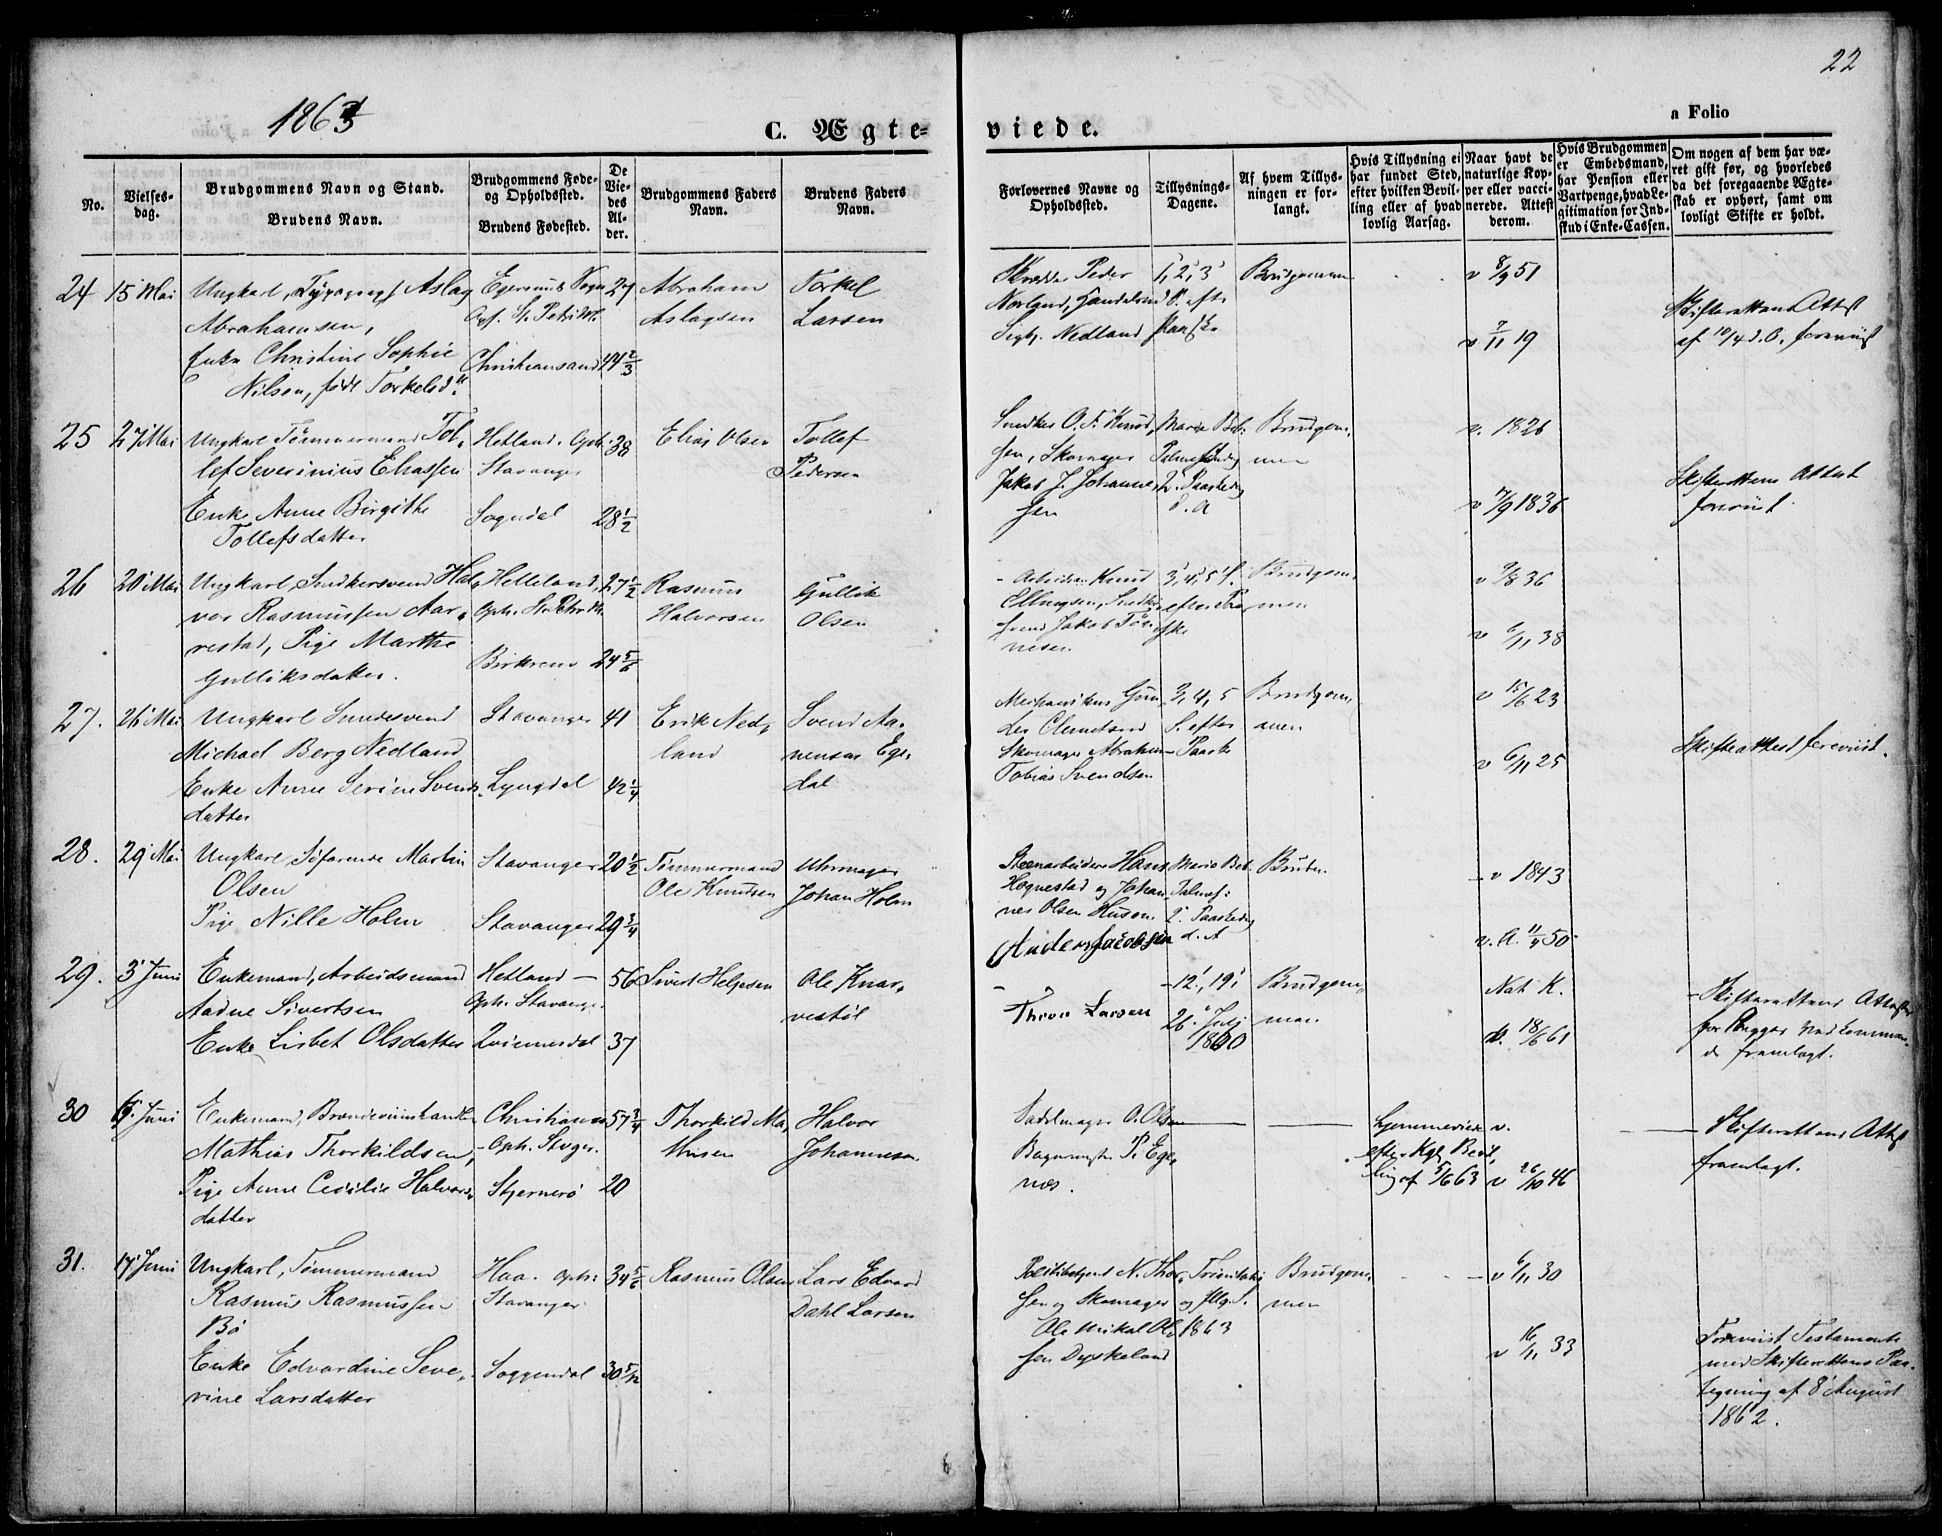 22
1863
C. Ægte-
viede.
a Folio
No.
Vielses-
dag.
Brudgommens Navn og Stand.
Brudens Navn.
Brudgommens Føde-
og Opholdssted.
Brudens Fødested.
De
Vie-
des
Al-
der.
Brudgommens Faders
Navn.
Brudens Faders
Navn.
Forlovernes Navne og
Opholdssted.
Tillysnings-
Dagene.
Af hvem Tillys-
ningen er for-
langt.
Hvis Tillysning ei
har fundet Sted,
efter hvilken Bevil-
ling eller af hvad
lovlig Aarsag.
Naar havt de
naturlige Kop-
per eller vacci-
nerede. Attest
derom.
Hvis Brudgommen
er Embedsmand,
har Pension eller
Vartpenge, hvad Le-
gitimation for Ind-
skud i Enke-Cassen.
Om nogen af dem har væ-
ret gift før, og hvorledes
da det foregaaende Ægte-
skab er ophørt, samt om
lovligt Skifte er holdt.
24 15 Mai Ungkarl, Typograf Aslag
Abrahamsen,
Enke Christine Sophie
Nilsen, født Torkelsd.
Egersunds Sogn
Oph. St. Petri M.
Christiansand
27
44 2/3
Abraham
Aslagsen
Torkel
Larsen
Skrædder Peder
Norlund, Handelsmd
Sigbj. Nedland
1, 2, 3
S. efter
Paaske
Brudgommen
v 8/9 51
v 7/11 19
Skifterettens Attest
af 10/4 d. A. forevist
25 27 Mai Ungkarl Tømmermand Tol-
lef Severinius Eliassen
Enke Anne Birgithe
Tollefsdatter
Hetland, Oph.
Stavanger
Sogndal
38
28 1/2
Elias Olsen
Tollef
Pedersen
Snedker O. F. Knud-
sen, Skomager
Jakob J. Johanne-
sen
Maria Beb.
Palmesøndag
2. Paaskedag
d. A
Brudgom-
men
v. 1826
v 7/9 1836
Skifterettens Attest
forevist.
26 20 Mai Ungkarl, Snedkersvend Hal-
vor Rasmussen Aar-
restad, Pige Marthe
Gulliksdatter.
Helleland,
Oph. St. Petri M.
Birkrem
27 1/2
24 5/6
Rasmus
Halvorsen
Gullik
Olsen
Arbeider Knud
Ellingsen, Snedker-
svend Jakob Tøn-
nesen.
3, 4, 5 S.
efter Paa-
ske
Brudgom-
men
v 9/8 36
v 6/11 38
27. 26 Mai Ungkarl Smedesvend
Michael Berg Nedland
Enke Anne Serine Svends-
datter
Stavanger
Lyngdal
41
42 1/4
Erik Ned-
land
Svend Aa-
nensen Ege-
dal
Mechanikus Gun-
der Clemetsen
Skomager Abraham
Tobias Svendsen
3, 4, 5
S. efter
Paaske
Brudgom-
men
v 15/6 23
v 6/11 25
Skifteattest forevist.
28. 29 Mai Ungkarl, Søfarende Martin
Olsen
Pige Nille Holm
Stavanger
Stavanger
20 1/2
29 3/4
Tømmermand
Ole Knudsen
Uhrmager
Johan Holm
Steenarbeider Hans
Hognestad og Johan-
nes Olsen Husom
Anders Jacobsen
Maria Beb.
Palmes:
2. Paaskedag
d. A
Bruden
v 1843
v. A. 11/4 50
29. 3 Juni Enkemand, Arbeidsmand
Aadne Sivertsen
Enke Lisbet Olsdatter
Hetland —
Oph. Stavanger
Qvinesdal
56
37
Sivert Helgesen
Ole Knar-
vestøl
Thore Larsen
12, 19,
26. Juli
1860
Brudgom-
men
Nat. K.
v. 18/6 61
Skifterettens Attester
for Begges Vedkommen-
de fremlagt.
30 6. Juni Enkemand, Brændeviinshandler
Mathias Thorkildsen,
Pige Anne Cecilie Halvors-
datter
Christianss.
Oph. Stvger.
Stjernerø
57 3/4
20
Thorkild Ma-
thisen
Halvor
Johannesen
Sadelmager O. Olsen
Bagermester P. Ege-
næs.
Hjemmeviede
efter Kgl. Bevil-
ling af 5/6 63
v.
v 26/10 46
Skifterettens Attest
fremlagt.
31. 17 Juni Ungkarl, Tømmermand
Rasmus Rasmussen
Bø
Enke Edvardine Seve-
rine Larsdatter
Haa. Oph.
Stavanger
Soggendal
34 5/6
30 5/12
Rasmus Olsen
Lars Edvard
Dahl Larsen
Politibetjent N. Thor-
sen og Skomager
Ole Mikal Ol-
sen Dyskeland
Trinitatis
og fllg. S.
1863
Brudgom-
men
v 6/11 30
v 16/11 33
Forevist Testament
med Skifterettens Paa-
tegning af 8 August
1862.